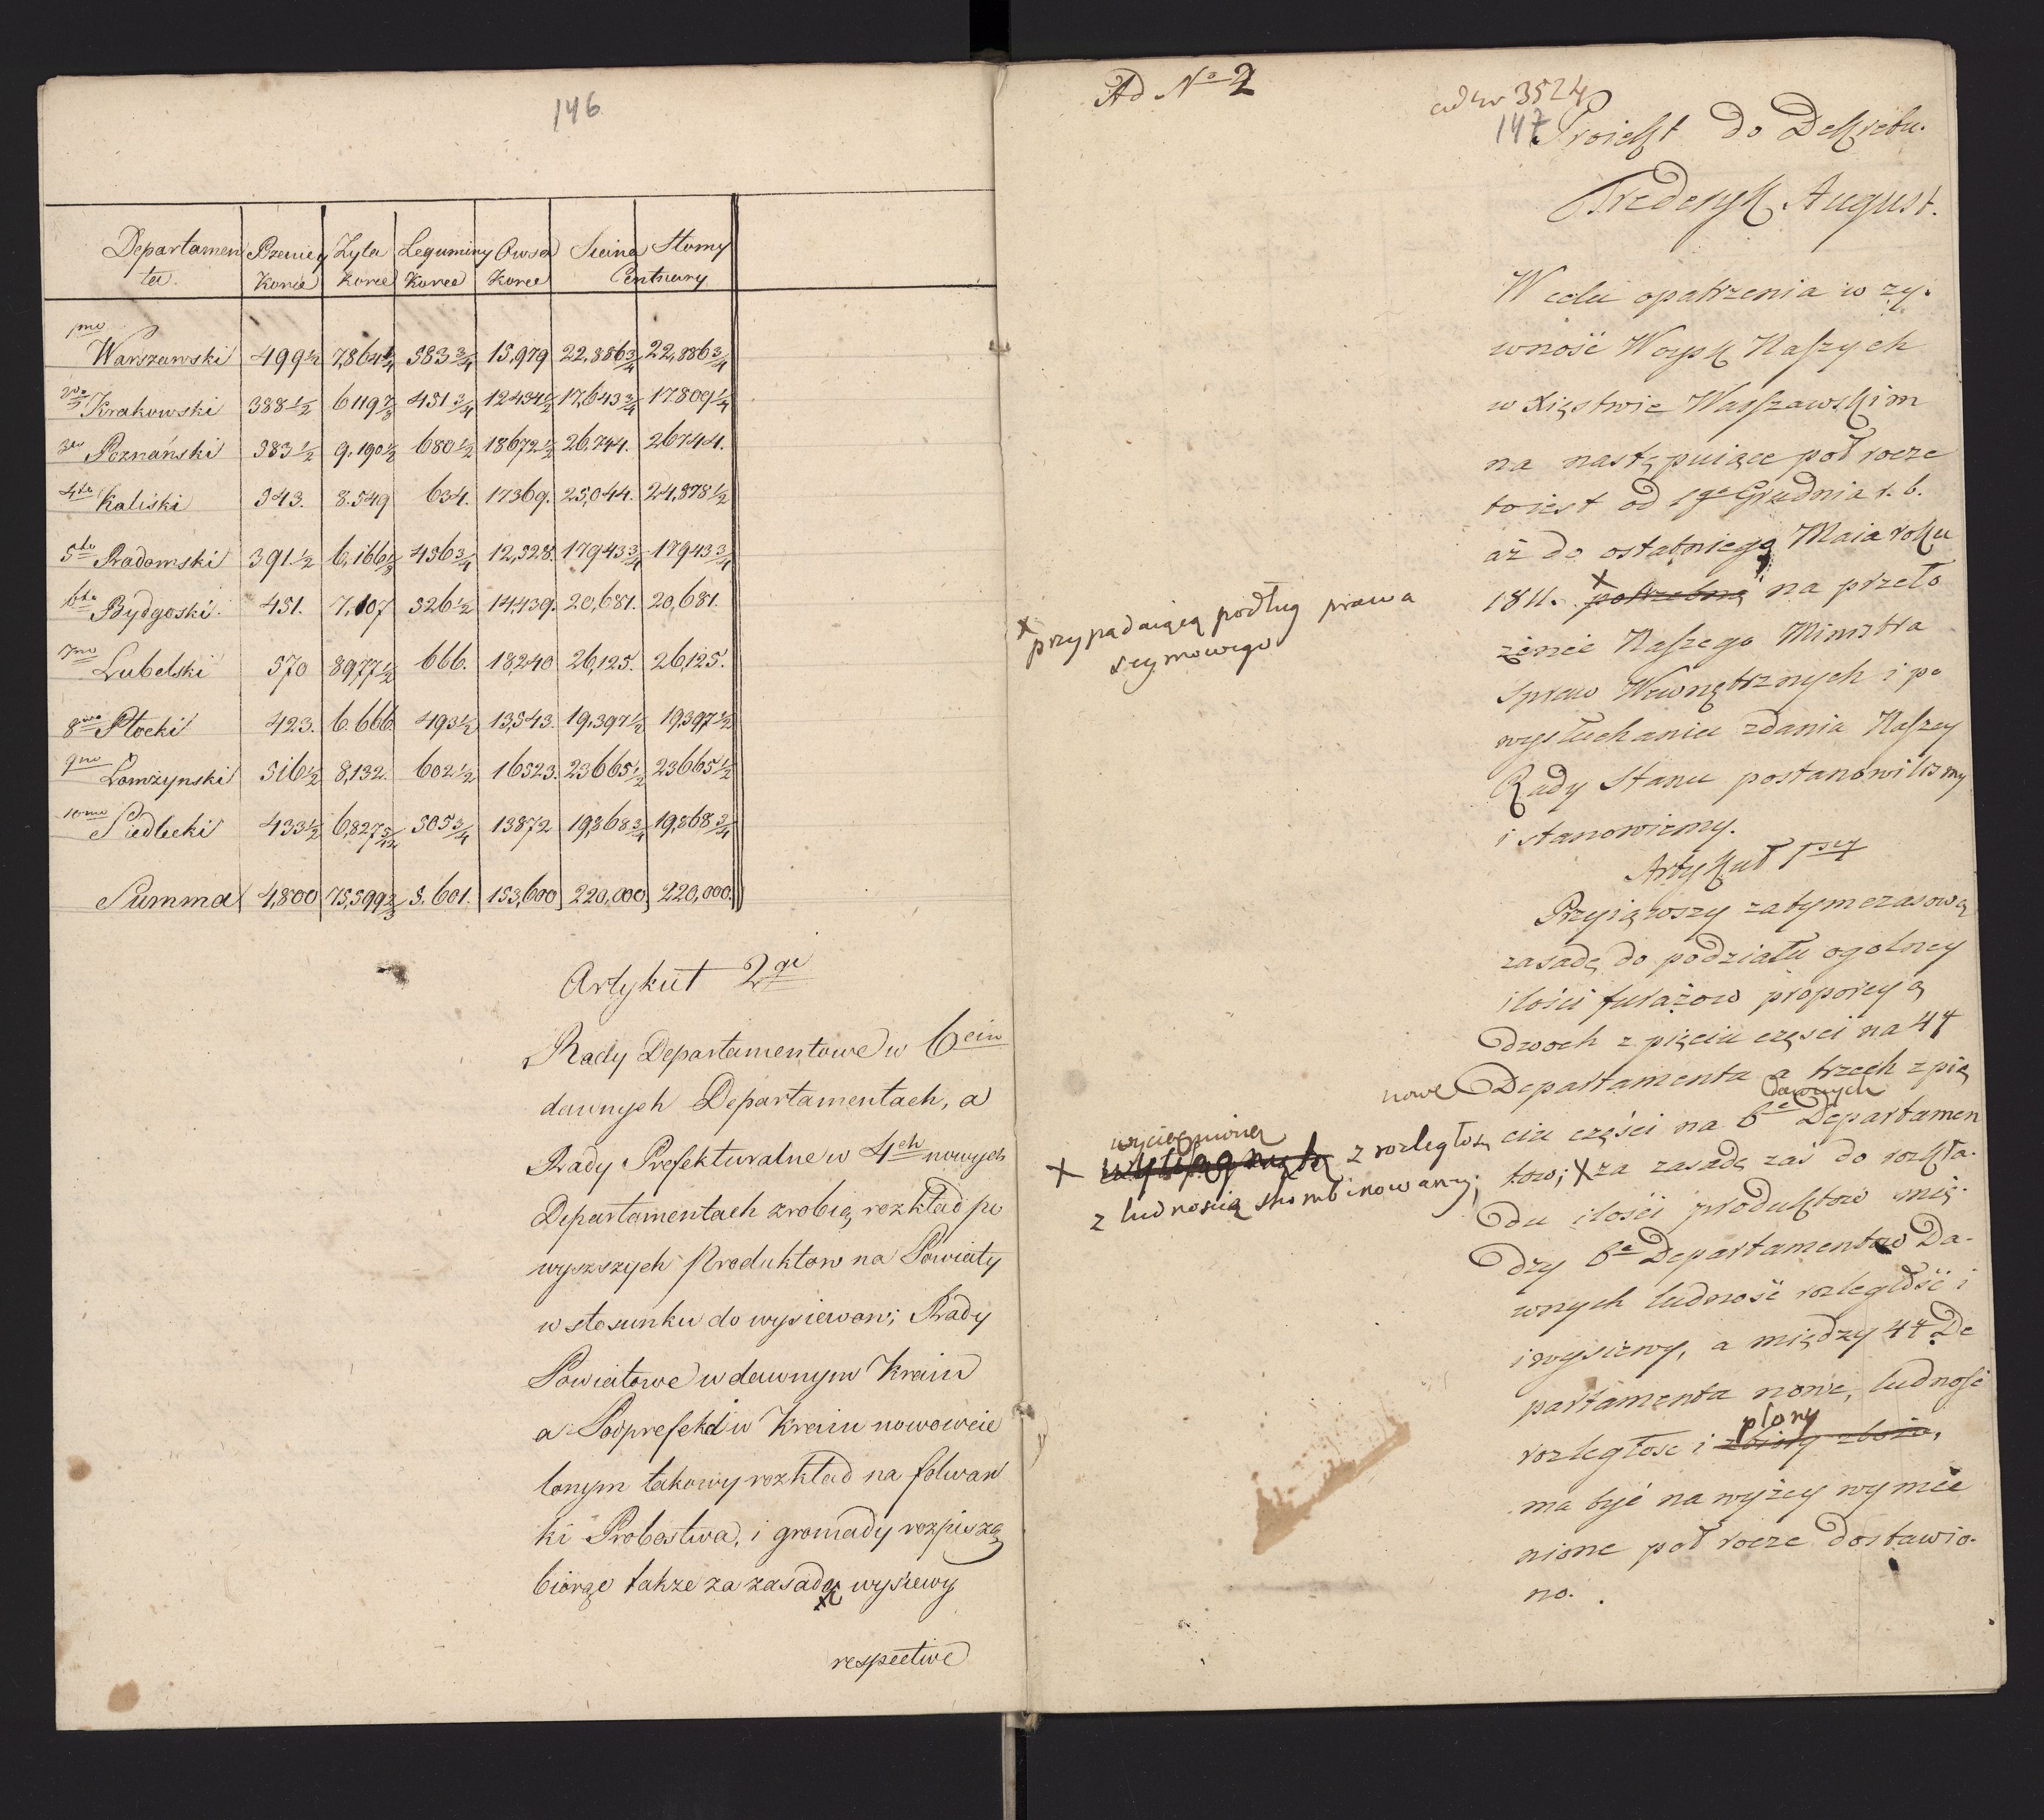 146
Departamen Pszenicy Zyta Leguminy Owsa Siana Słomy
ta. Korce Korce Korce Korce Centnary
1mo Warszawski 499½ 7,864¼ 583¾ 15,979 22,886¾ 22,886¾
2do Krakowski 388½ 6119⅔ 451¾ 12434½ 17,643¾ 17809¼
3tio Poznański 383½ 9,190½ 680½ 18672½ 26,744. 26744.
4to Kaliski 343. 8.549 634. 17369. 25,044. 24,878½
5to Radomski 391½ 6,166⅓ 456¾ 12,528. 17943¾ 17943¾
6to Bydgoski 451. 7,107 526½ 14,439. 20,681. 20,681.
7mo Lubelski 570 8977½ 666. 18240 26,125. 26,125.
8vo Płocki 423. 6.666 493½ 13,543. 19,397½ 19,397½
9no Łomżynski 516½ 8,132. 602½ 16523. 23665½ 23665½
10mo Siedlecki 433½ 6,827 5/12 505¾ 13872 19,868¾ 19,868¾
Summa 4,800 75,599⅔ 5,601. 153,600 220,000 220,000.
Artykuł 2gi
Rady Departamentowe w 6ciu
dawnych Departamentach, a
Rady Prefekturalne w 4ech nowych
Departamentach zrobią rozkład po
wyszszych Produktow na Powiaty
w stosunku do wysiewow; Rady
Powiatowe w dawnym Kraiu
a Podprefekci w Kraiu nowowcie
lonym takowy rozkład na folwar
ki Probostwa, i gromady rozpiszą
biorąc takze za zasadę wysiewy
x
respective
Ad No 2
ad nr 3524
147
Proiekt do Dekretu.
Frederyk August.
W celu opatrzenia w zy-
wność Woysk Naszych
w Xięstwie Warszawskim
na następuiące pół rocze
toiest od 1go Grudnia r. b.
aż do ostatniego Maia roku
1811. x potrzebną na przeło
x przypadaiącą podług prawa
seymowego
żenie Naszego Ministra
Spraw Wewnętrznych i po
wysłuchaniu zdania Naszey
Rady Stanu postanowilismy
i stanowiemy.
Artykuł 1szy
Przyiąwszy zatymczasową
zasadę do podziału ogolney
ilości furażow proporcyą
dwoch z pięciu części na 4y
nowe Departamenta a trzech z pię
dawnych
ciu części na 6c Departamen
tow; x za zasadę zaś do rozkła-
wyciągnioną
x z rozległosci
z ludnoscią skombinowaney;
du ilości produktow mię-
dzy 6c Departamentow Da-
wnych ludność rozległość i
i wysiewy, a między 4y De
partamenta nowe, ludność
plony
rozległosc i zbiory zboża,
ma być na wyżey wymie
nione pół rocze dostawio-
no.